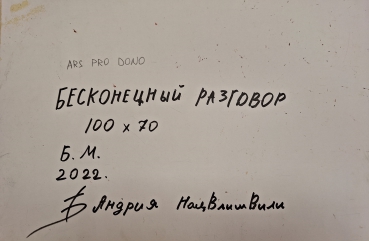 ARS PRO DONO
БЕСКОНЕЦНЫЙ РАЗГОВОР
100 х 70
Б. М.
2022.
Андрия НацВлишВили